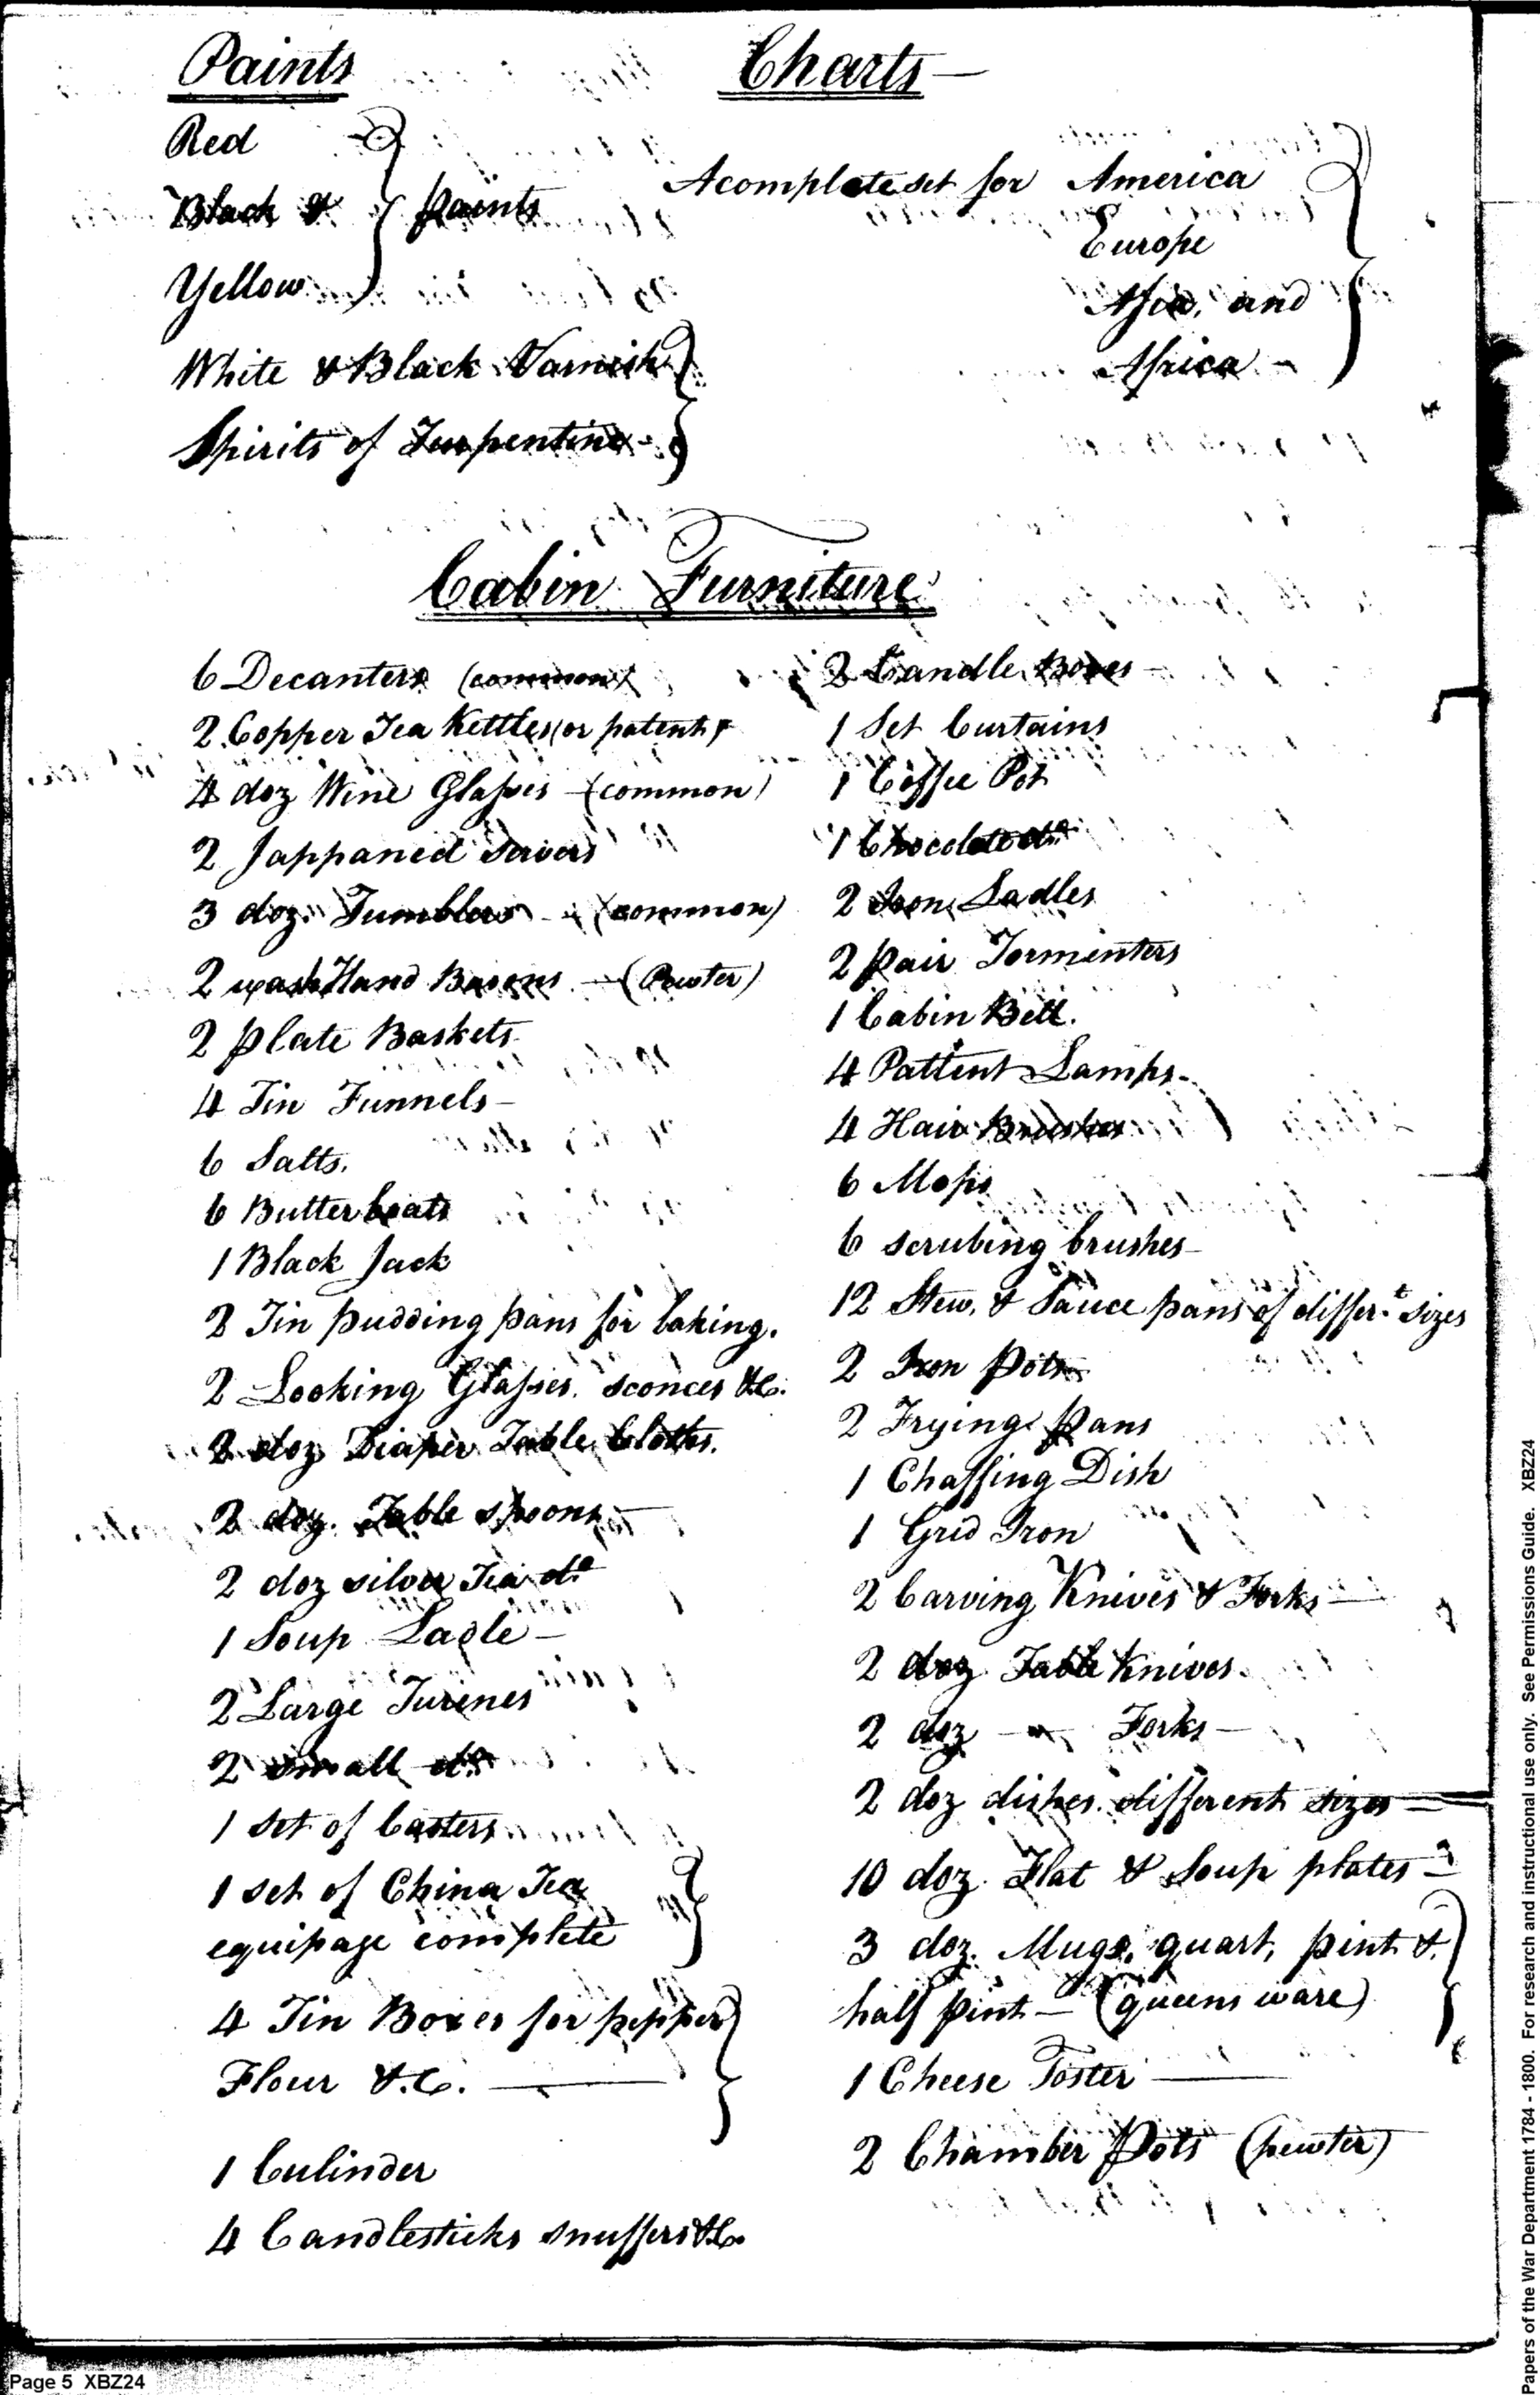 Paints
Red
Black &
Yellow
paints
White & Black Varnish
Spirits of Turpentine
Charts
A complete set for America
Europe
Asia, and
Africa
Cabin Furniture
6 Decanters (common)
2 Copper Tea Kettles (or patent)
4 doz Wine Glasses (common)
2 Jappaned servers
3 doz. Tumblers (common)
2 wash Hand Basons (Pewter)
2 plate Baskets
4 Tin Funnels
6 Salts.
6 Butter boats
1 Black Jack
2 Tin pudding pans for baking.
2 Looking Glasses. sconces &c.
2 doz Diaper Table Cloths.
2 doz. Table spoons
2 doz silver Tea do
1 Soup Ladle
2 Large Turenes
2 small do
1 set of Casters
1 set of China Tea
equipage complete
4 Tin Boxes for pepper
Flour &.C.
1 Culinder
4 Candlesticks snuffers &c
2 Candle Boxes
1 Set Curtains
1 Coffee Pot
1 Chocolate do
2 Iron Ladles
2 pair Tormenters
1 Cabin Bell.
4 Pattent Lamps
4 Hair Brushes
6 Mops
6 scrubing brushes
12 Stew, & Sauce pans of differ.t sizes
2 Iron Pots
2 Frying Pans
1 Chaffing Dish
1 Grid Iron
2 Carving Knives & Forks
2 doz Table Knives
2 doz " Forks
2 doz dishes different sizes
10 doz. Flat & Soup plates
3 doz. Mugs, quart, pint &
half pint (queens ware)
1 Cheese Toster
2 Chamber Pots (pewter)
Page 5 XBZ24
Papers of the War Department 1784 - 1800. For research and instructional use only. See Permissions Guide. XBZ24